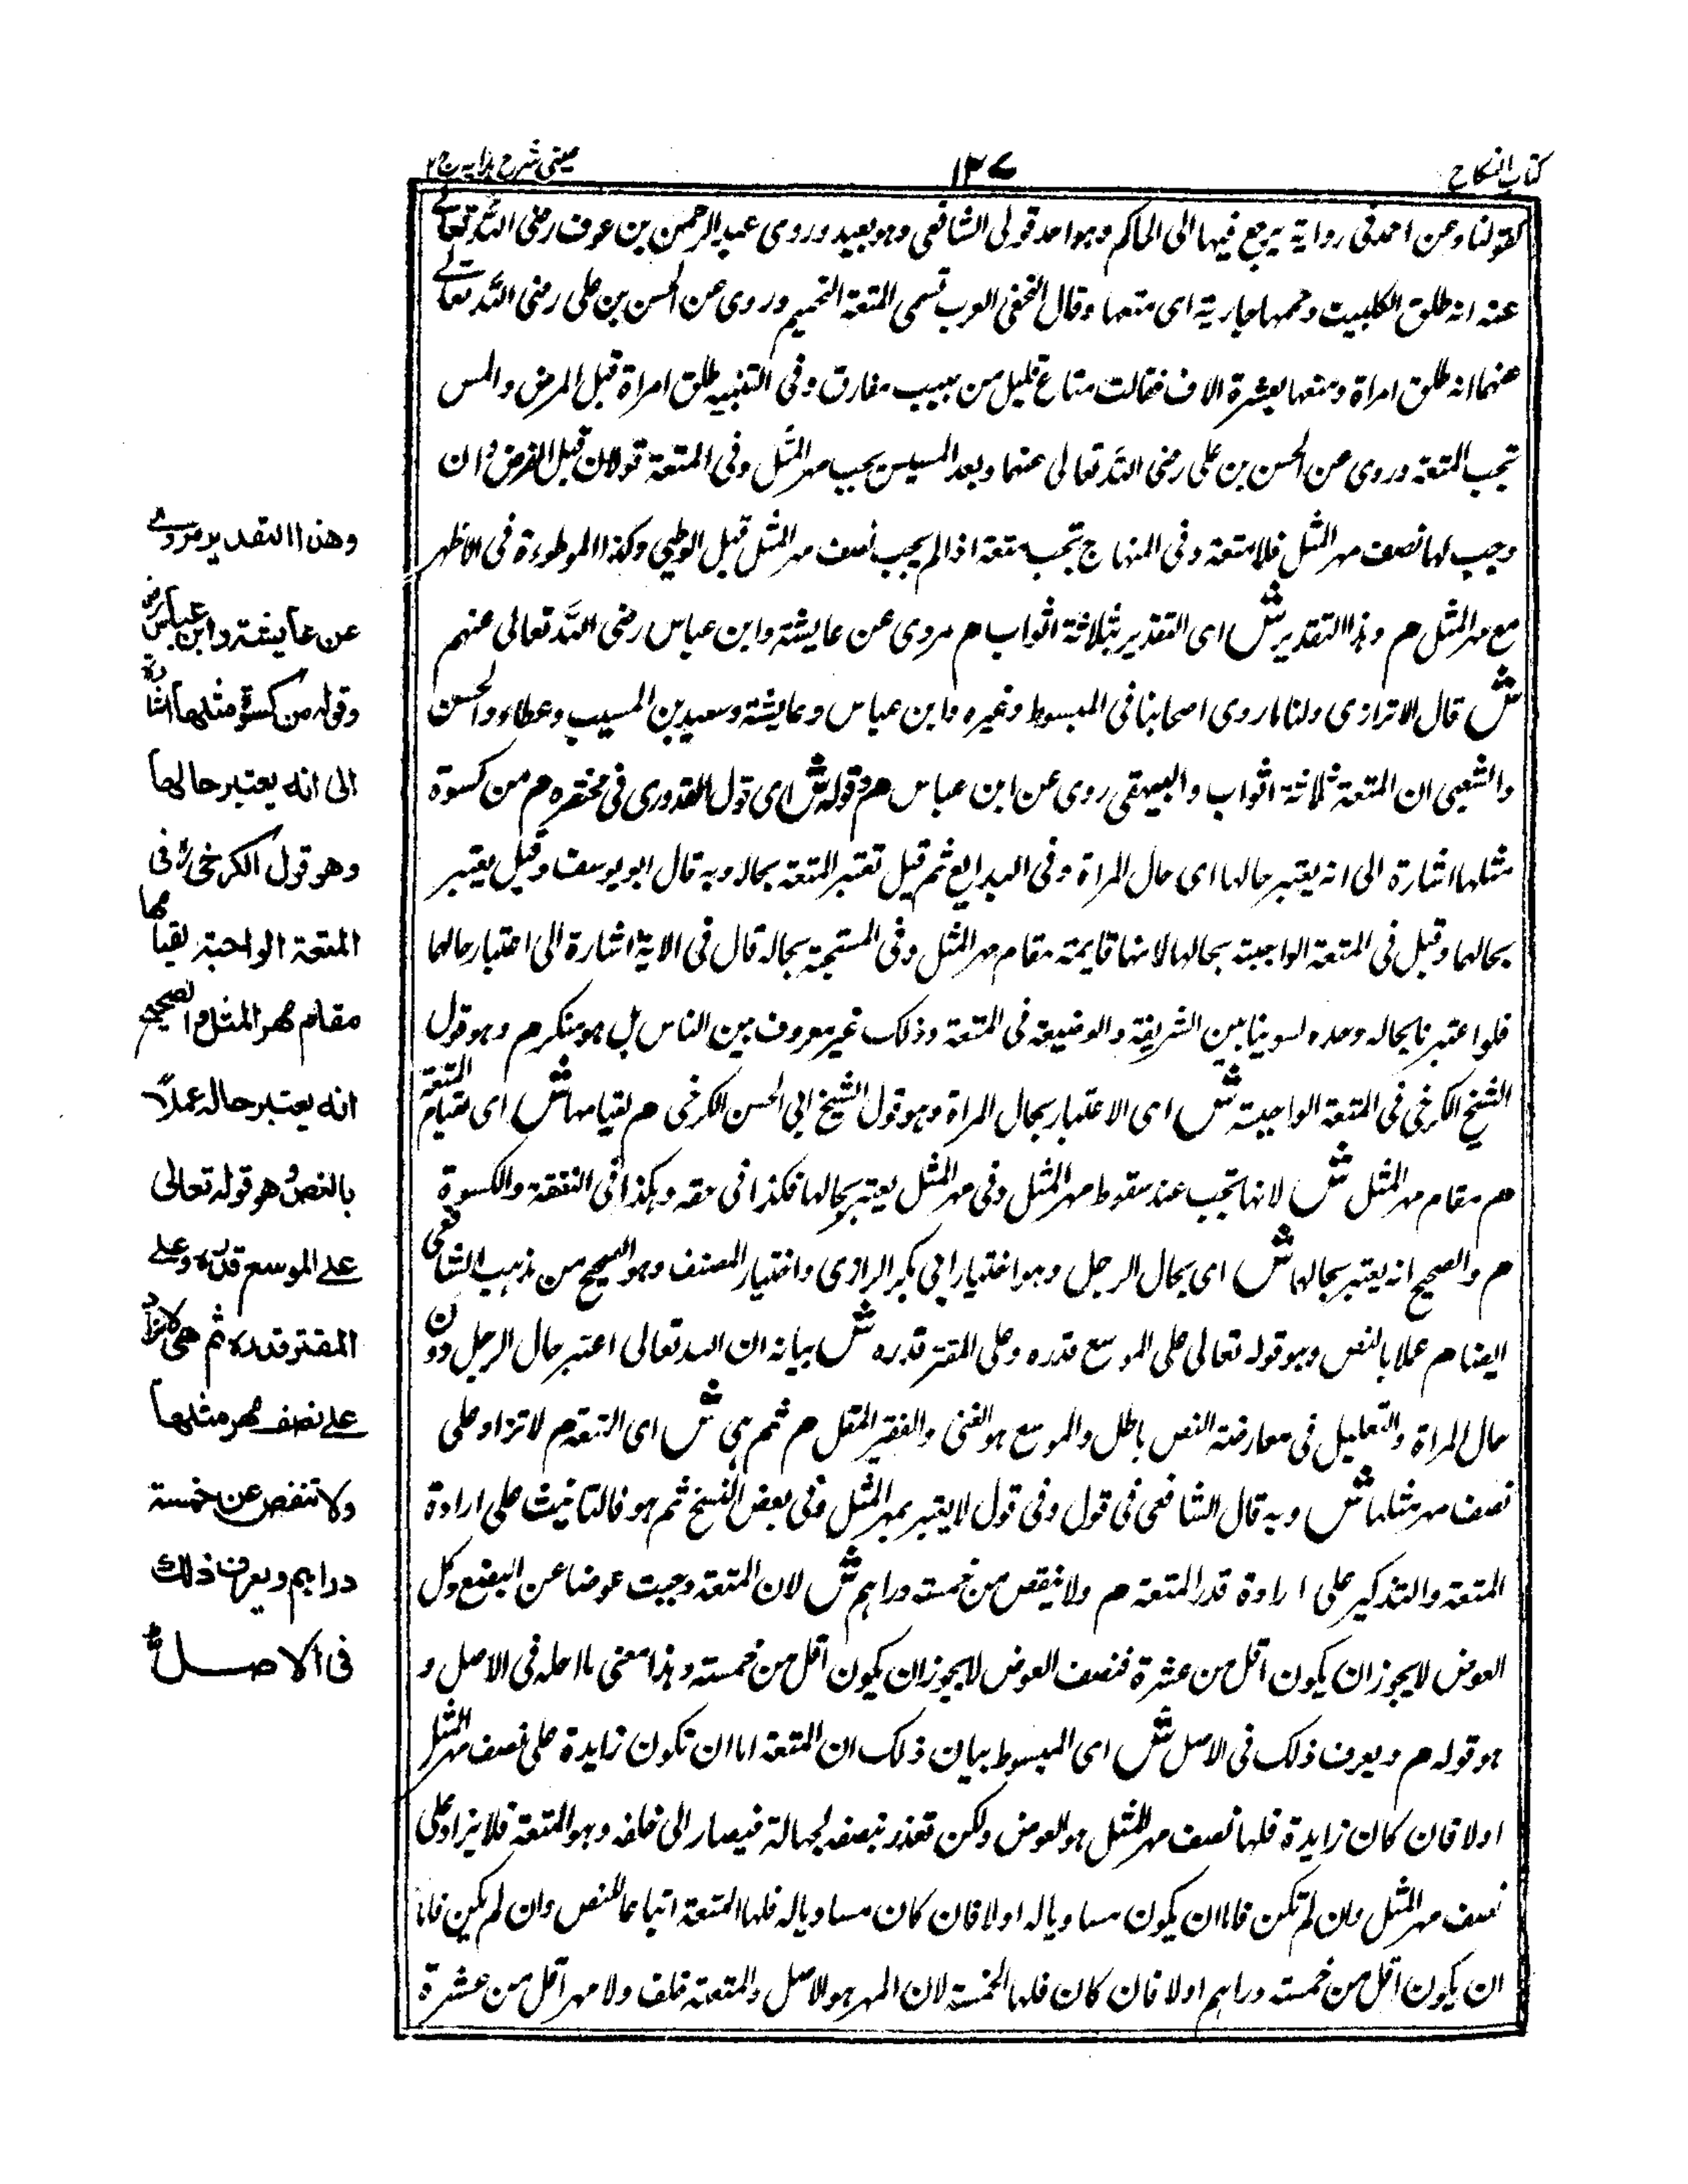 كتاب النكاح
١٣٧
عينى شرح هدايه ج ٢
كقولنا وعن احمد فى رواية يرجع فيها الى الحاكم وهو احد قولى الشافعى وهو بعيد وروى عبد الرحمن بن عوف رضى الله تعالى
عنه انه طلق الكلبيت وحممها جارية اى متعها وقال النخعى العرب تسمى المتعة التحميم وروى عن الحسن بن على رضى الله تعالى
عنهما انه طلق امراة ومتعها بعشرة الاف فقالت متاع قليل من حبيب مفارق وفى التنبيه طلق امراة قبل الفرض والمس
تجب المتعة وروى عن الحسن بن على رضى الله تعالى عنهما وبعد المسيس يجب مهر المثل وفى المتعة قولان قبل الفرض وان
وجب لها نصف مهر المثل فلا متعة وفى المنهاج تجب متعة اذا لم يجب نصف مهر المثل قبل الوطى وكذا الموطوءة فى الاظهر
مع مهر المثل م وهذا التقدير ش اى التقدير بثلاثة اثواب م مروى عن عايشة وابن عباس رضى الله تعالى عنهم
ش قال الاترازى ولنا ما روى اصحابنا فى المبسوط وغيره وابن عباس وعايشة وسعيد بن المسيب وعطاء والحسن
والشعبى ان المتعة ثلاثة اثواب والبيهقى روى عن ابن عباس م وقوله ش اى قول القدورى فى مختصره م من كسوة
مثلها اشارة الى انه يعتبر حالها اى حال المراة وفى البدايع ثم قيل تعتبر المتعة بحاله وبه قال ابو يوسف وقيل يعتبر
بحالهما وقيل فى المتعة الواجبة بحالها لانها قايمة مقام مهر المثل وفى المستحبة بحاله قال فى الاية اشارة الى اعتبار حالهما
فلو اعتبرنا بحاله وحده لسوينا بين الشريفة والوضيعة فى المتعة وذلك غير معروف بين الناس بل هو منكر م وهو قول
الشيخ الكرخى فى المتعة الواجبة ش اى الاعتبار بحال المراة وهو قول الشيخ ابى الحسن الكرخى م لقيامها ش اى لقيام المتعة
م مقام مهر المثل ش لانها تجب عند سقوط مهر المثل وفى مهر المثل يعتبر بحالها فكذا فى حقه وهكذا فى النفقة والكسوة
م والصحيح انه يعتبر بحالها ش اى بحال الرجل وهو اختيار ابى بكر الرازى واختيار المصنف وهو الصحيح من مذهب الشافعى
ايضا م عملا بالنص وهو قوله تعالى على الموسع قدره وعلى المقتر قدره ش بيانه ان الله تعالى اعتبر حال الرجل دون
حال المراة والتعليل فى معارضة النص باطل والموسع هو الغنى والفقير المقل م ثم هى ش اى المتعة م لا تزاد على
نصف مهر مثلها ش وبه قال الشافعى فى قول وفى قول لا يعتبر بمهر المثل وفى بعض النسخ ثم هو فالتانيث على ارادة
المتعة والتذكير على ارادة قدر المتعة م ولا ينقص من خمسة دراهم ش لان المتعة وجبت عوضا عن البضع وكل
العوض لا يجوز ان يكون اقل من عشرة فنصف العوض لا يجوز ان يكون اقل من خمسة وهذا معنى ما احله فى الاصل و
هو قوله م ويعرف ذلك فى الاصل ش اى المبسوط بيان ذلك ان المتعة اما ان تكون زايدة على نصف مهر المثل
اولا فان كان زايدة فلها نصف مهر المثل هو العوض ولكن تعذر بنصفه لجهالة فيصار الى خلفه وهو المتعة فلا يزاد على
نصف مهر المثل وان لم تكن فاما ان يكون مساويا له اولا فان كان مساويا له فلها المتعة اتباعا للنص وان لم يكن فاما
ان يكون اقل من خمسة دراهم اولا فان كان فلها الخمسة لان المهر هو الاصل والمتعة خلف ولا مهر اقل من عشرة
وهذا التقدير مروى
عن عايشة وابن عباس رض
وقوله من كسوة مثلها اشارة
الى انه يعتبر حالها
وهو قول الكرخى رح فى
المتعة الواجبة لقيامها
مقام مهر المثل والصحيح
انه يعتبر حاله عملاً
بالنص وهو قوله تعالى
على الموسع قدره وعلى
المقتر قدره ثم هى لا تزاد
على نصف مهر مثلها
ولا تنقص عن خمسة
دراهم ويعرف ذلك
فى الاصل